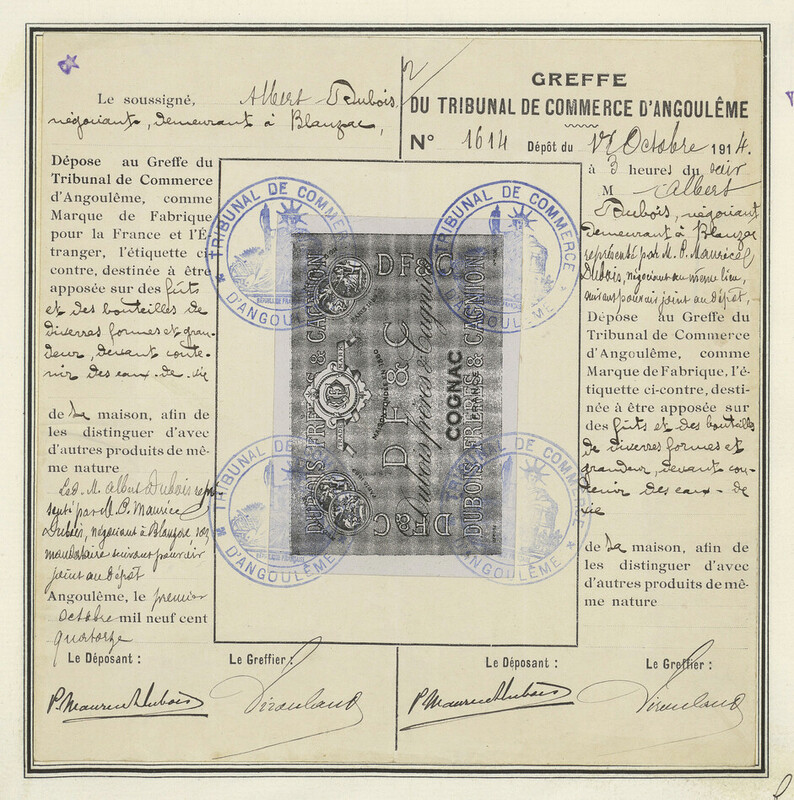 Le soussigné, Albert Dubois,
négociant, demeurant à Blanzac,
Dépose au Greffe du
Tribunal de Commerce
d'Angoulême, comme
Marque de Fabrique
pour la France et l'É-
tranger, l'étiquette ci-
contre, destinée à être
apposée sur des fûts
et des bouteilles de
diverses formes et gran-
deur, devant conte-
nir des eaux-de-vie
de sa maison, afin de
les distinguer d'avec
d'autres produits de mê-
me nature
Led. M. Albert Dubois repré
senté par M. P. Maurice
Dubois, négociant à Blanzac, son
mandataire suivant pouvoir
joint au dépôt
Angoulême, le premier
octobre mil neuf cent
quatorze
Le Déposant :
Le Greffier :
P. Maurice Dubois
2
GREFFE
DU TRIBUNAL DE COMMERCE D'ANGOULÊME
N° 1614 Dépôt du Octobre 1914.
à 3 heures du soir
M Albert
Dubois, négociant
demeurant à Blanzac
représenté par M. P. Maurice
Dubois, négociant au même lieu,
suivant pouvoir joint au dépôt,
Dépose au Greffe du
Tribunal de Commerce
d'Angoulême, comme
Marque de Fabrique, l'é-
tiquette ci-contre, desti-
née à être apposée sur
des fûts et des bouteilles
de diverses formes et
grandeur, devant con-
tenir des eaux-de-
vie
de sa maison, afin de
les distinguer d'avec
d'autres produits de mê-
me nature
Le Déposant :
Le Greffier :
P. Maurice Dubois
TRIBUNAL DE COMMERCE
D'ANGOULÊME
TRIBUNAL DE COMMERCE
D'ANGOULÊME
TRIBUNAL DE
D'ANGOULÊME
D'ANGOULÊME
DF&C
DUBOIS FRERES & CAGNION
TRADE
MARK
DF&C
Dubois frères & Cagnion
COGNAC
FRANCE
DUBOIS FRERES & CAGNION
DF&C